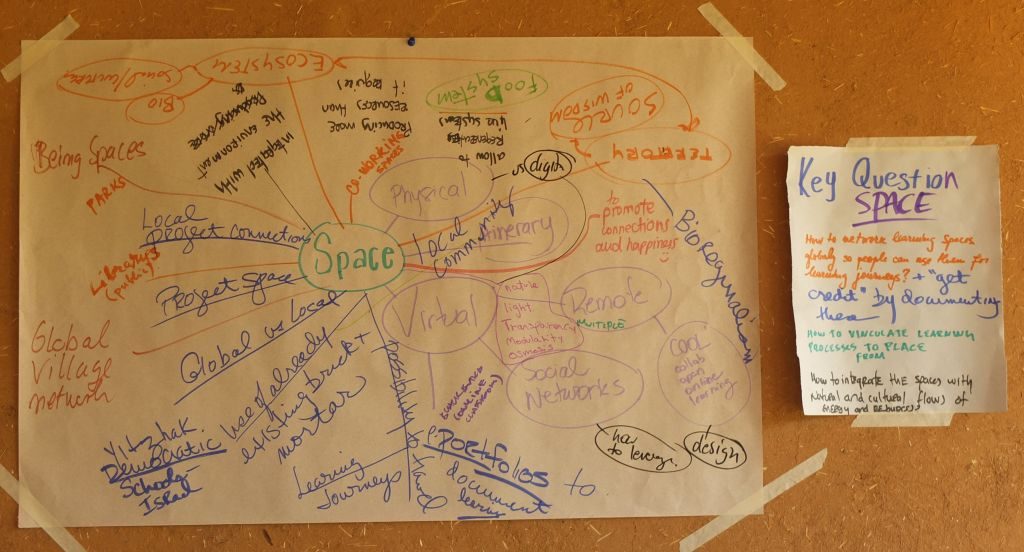 ECOSYSTEM
Social/cultural
BIO
INTEGRATED WITH
THE ENVIRONMENT
PRODUCING MORE
RESOURCES THAN
it requires
FOOD
System
allow to
live systems
SOURCE
OF WISDOM
TERRITORY
CO-WORKING
SPACES
Being Spaces
PARKS
Local
Project connections
Librarys
(public)
Project Space
Global vs Local
Global
Village
network
Space
Physical
vs digital
Local
Community
Itinerary
to
promote
connections
and happiness
Bioregionalism
Virtual
nature
light
Transparency
Modularity
OSMOSIS
REMOTE
MULTIPLE
Social
NETWORKS
COOL
collab
open
online
learning
how
to leverage
design
use of already
existing brick +
mortar
possibility to travel
Learning
Journeys
e-PORTfolios to
document
learning
Yitzhak
Democratic
Schools
Israel
Key Question
SPACE
How to network learning spaces
globally so people can use them for
learning journeys? + "get
credit" by documenting
them
HOW TO VINCULATE LEARNING
PROCESSES TO PLACE
FROM
How to integrate THE spaces with
natural and cultural flows of
energy and resources?